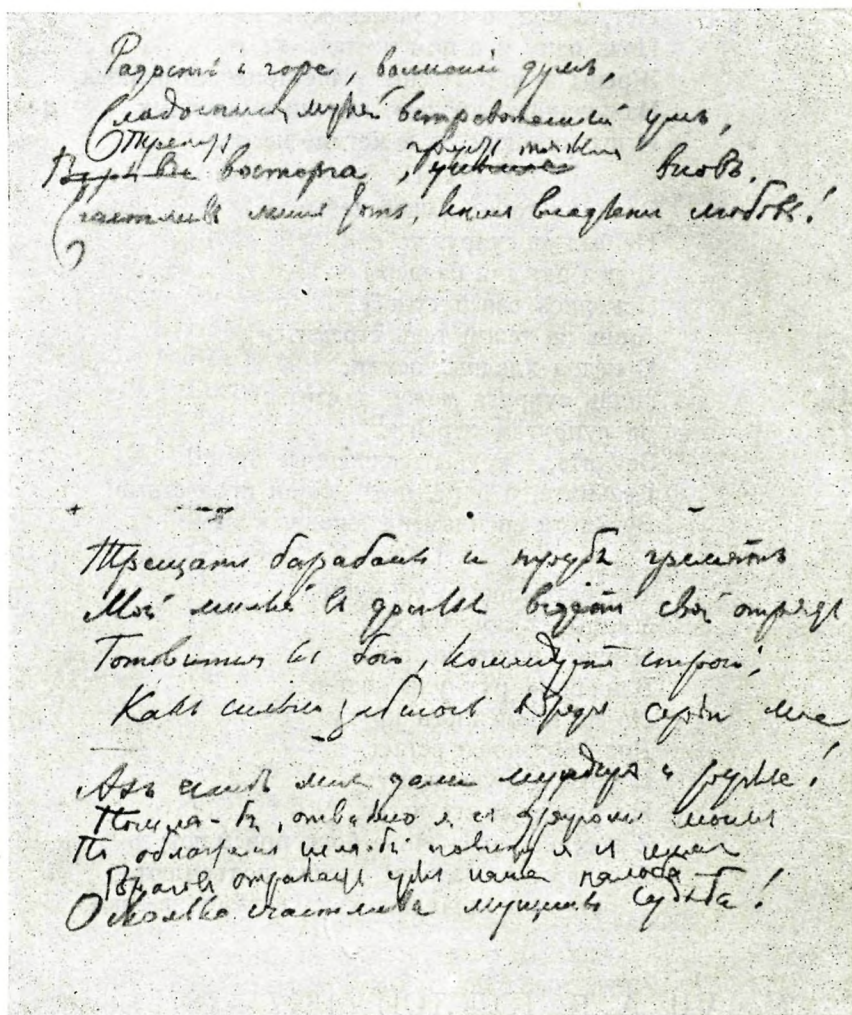 Радость и горе, волненiе думъ,
Сладостной мукой встревоженный умъ,
Трепетъ грусть тяжкая
восторга, унынiе вновь.
Счастливъ лишь тотъ, кѣмъ владѣетъ любовь!
Трещатъ барабаны и трубы гремятъ
Мой милый въ ведетъ свой отрядъ
Готовится къ бою, командуетъ строго;
Какъ сильно забилось въ груди сердце мое
Ахъ еслибъ мнѣ дали мундиръ и ружье!
Пошла-бъ, отважно я съ другомъ моимъ
По я съ нимъ
отражаетъ ужъ наша пальба
О сколько счастлива мущинъ судьба!